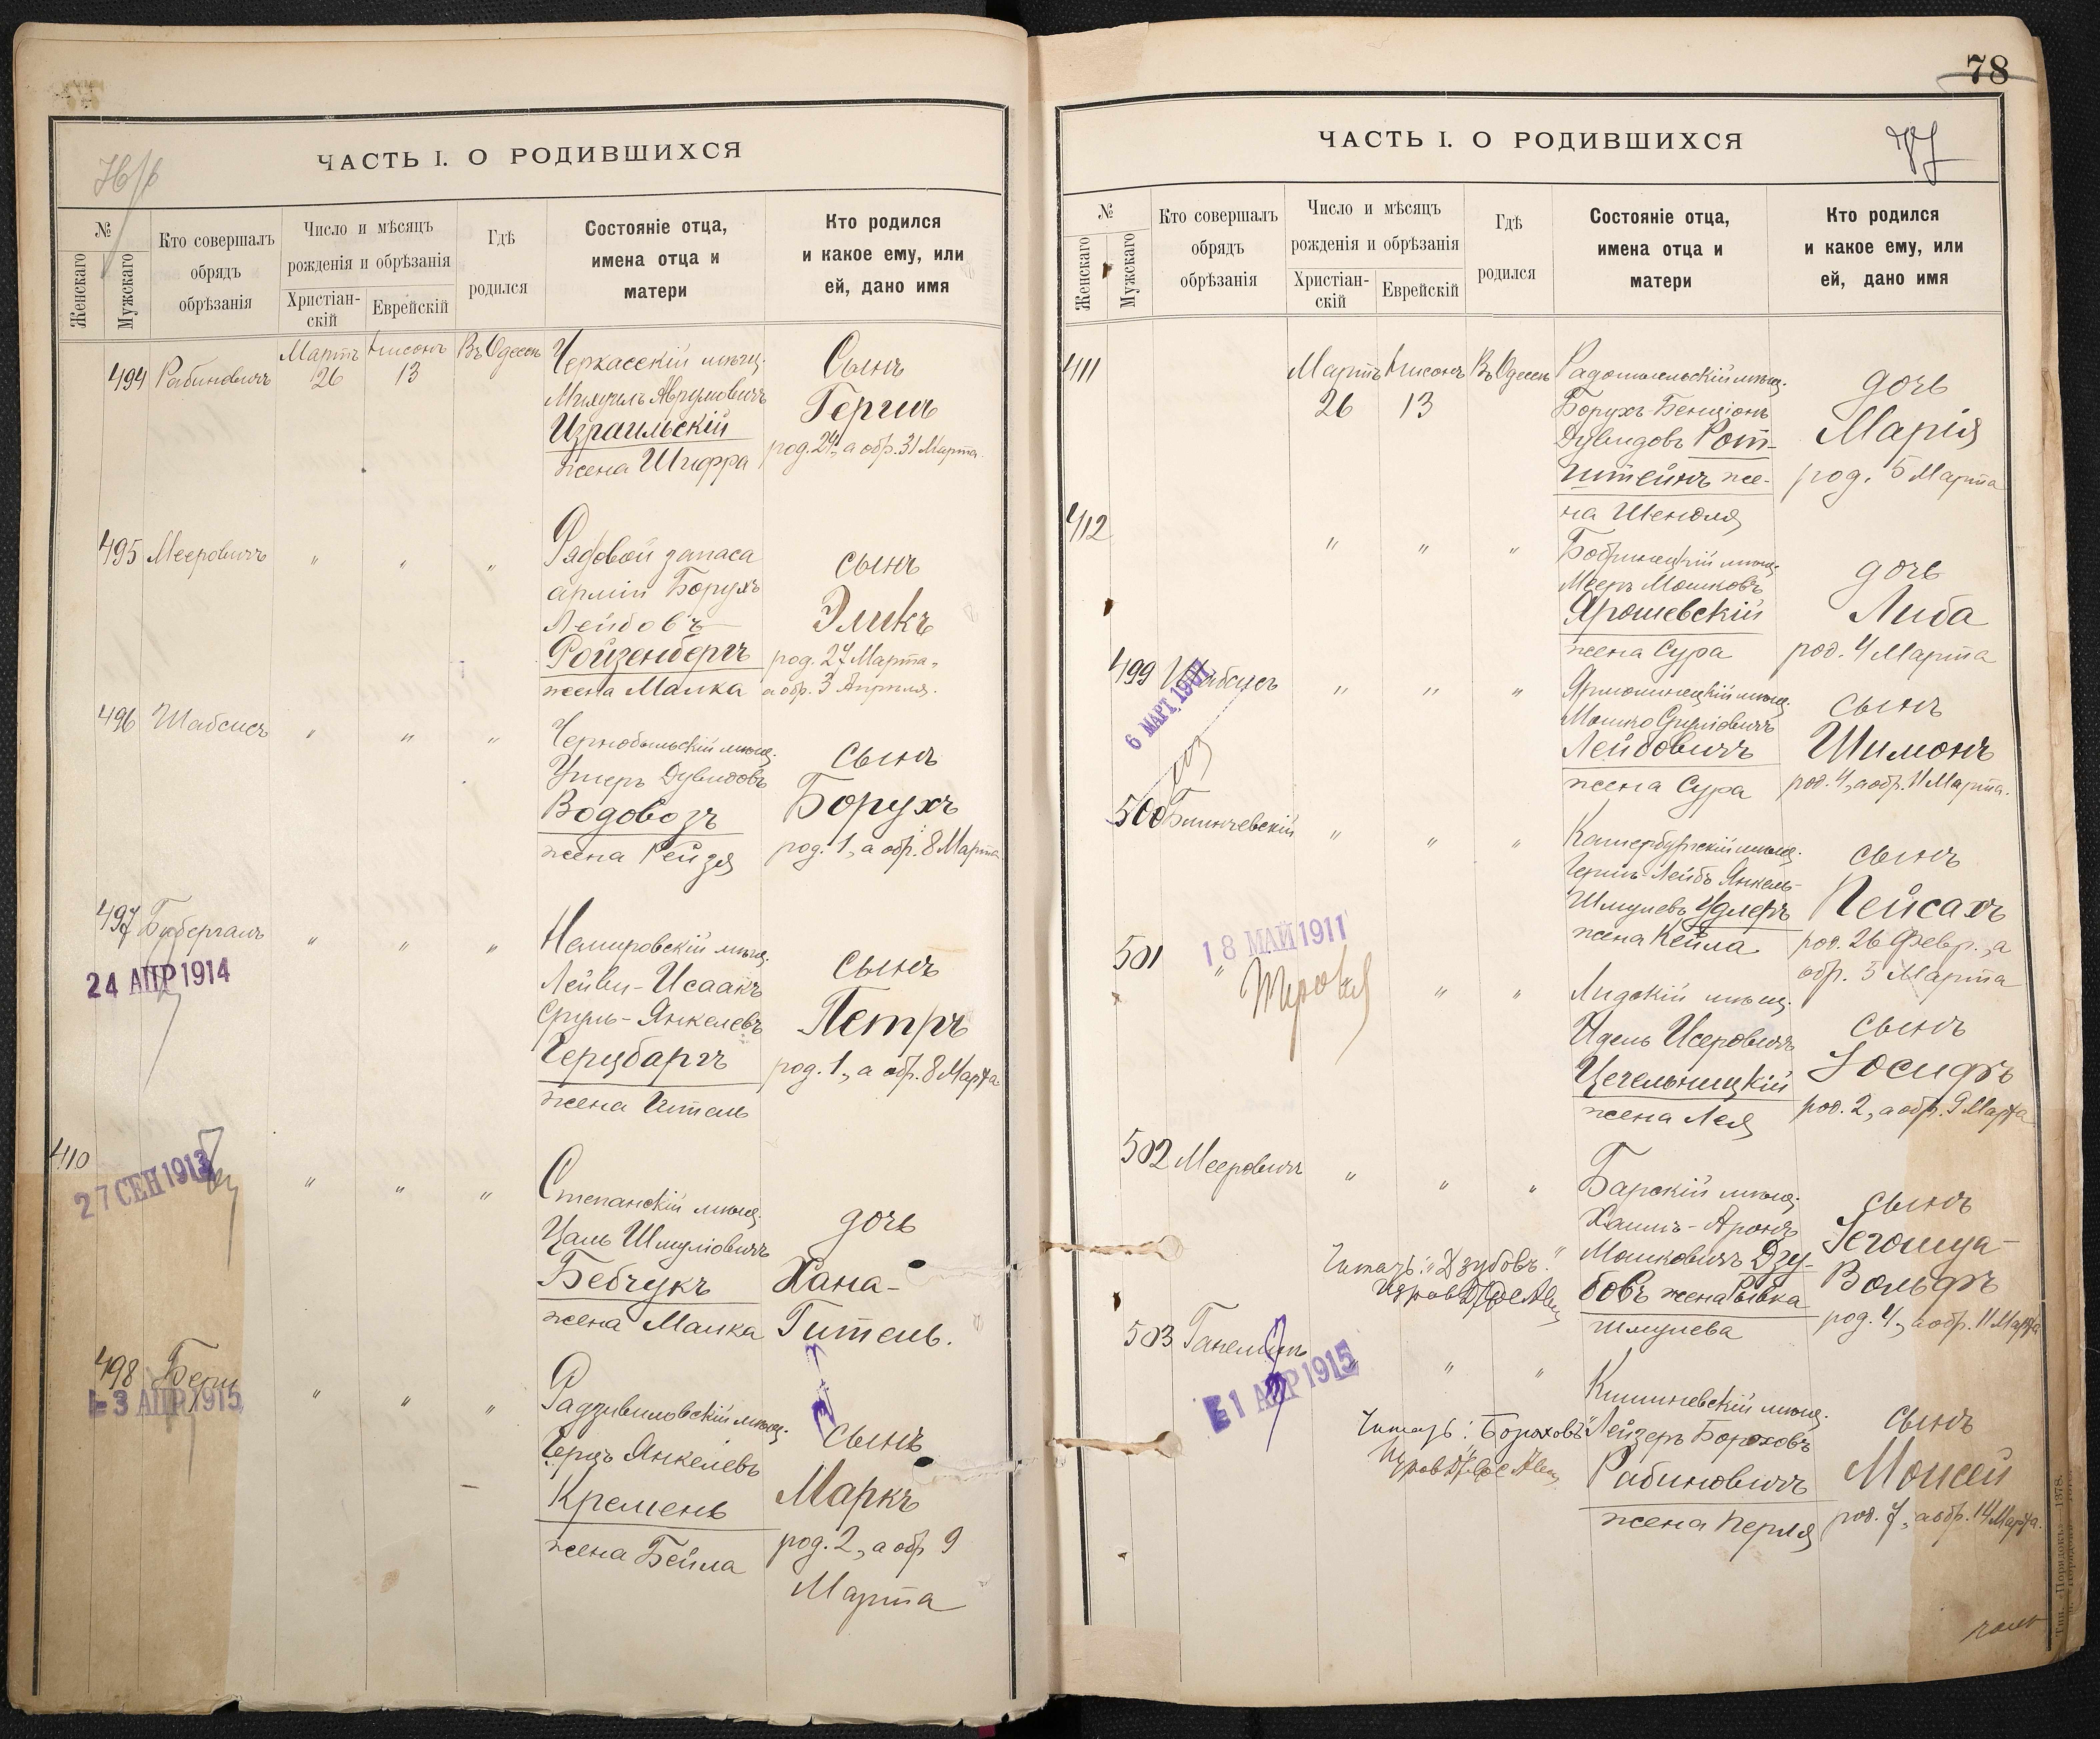 ЧАСТЬ I. О РОДИВШИХСЯ
№
Женскаго
Мужскаго
Кто совершалъ
обрядъ
обрѣзанія
Число и мѣсяцъ
рожденія и обрѣзанія
Христіан-
скій
Еврейскій
Гдѣ
родился
Состояніе отца,
имена отца и
матери
Кто родился
и какое ему, или
ей, дано имя
494 Рабиновичъ
Мартъ 26
Нисонъ 13
Въ Одессѣ
Черкасскій мѣщ.
Израильскій
жена Шифра
Сынъ
Герш
род. 24, а обр. 31 Марта.
495 Мееровичъ " " "
Рядовой запаса
арміи Борухъ
Лейбовъ
Ройзенбергъ
жена Малка
сынъ
Эликъ
род. 27 Марта,
а обр. 3 Апрѣля.
496 Шабсисъ " " "
Чернобыльскій мѣщ.
Ушеръ Дувидовъ
Водовозъ
жена Рейзя
сынъ
Борухъ
род. 1, а обр. 8 Марта
497
24 АПР 1914
" " "
Немировскій мѣщ.
Лейви-Исаакъ
Сруль-Янкелевъ
Герцбаргъ
жена Гитель
сынъ
Петръ
род. 1, а обр. 8 Марта
410
27 СЕН 1913
" " "
Степанскій мѣщ.
Цаль Шмуліовичъ
Бебчукъ
жена Малка
дочь
Хана-
Гитель.
498
3 АПР 1915
" " "
Радзивиловскій мѣщ.
Герцъ Янкелевъ
Кремень
жена Бейла
сынъ
Маркъ
род. 2, а обр 9
Марта
78
ЧАСТЬ I. О РОДИВШИХСЯ
№
Женскаго
Мужскаго
Кто совершалъ
обрядъ
обрѣзанія
Число и мѣсяцъ
рожденія и обрѣзанія
Христіан-
скій
Еврейскій
Гдѣ
родился
Состояніе отца,
имена отца и
матери
Кто родился
и какое ему, или
ей, дано имя
411
Мартъ 26
Нисонъ 13
Въ Одессѣ
Радомысльскій мѣщ.
Борухъ-Бенціонъ
Дувидовъ Рот-
штейнъ же-
на Шендля
дочь
Марія
род. 5 Марта
412
" " "
Бобринецкій мѣщ.
Мееръ Мошковъ
Ярошевскій
жена Сура
дочь
Либа
род. 4 Марта
499 Шабсисъ
6 МАРТ 1907
" " "
Ярмолинецкій мѣщ.
Мошко Сруліовичъ
Лейбовичъ
жена Сура
сынъ
Шимонъ
род. 4, а обр. 11 Марта.
500
" " "
Катербургскій мѣщ.
Гершъ-Лейбъ Янкель-
Шмулевъ Удлеръ
жена Кейла
сынъ
Пейсахъ
род. 26 Февр., а
обр. 5 Марта
501
18 МАЙ 1911
" " "
Лидскій мѣщ.
Идель Исеровичъ
Цегельницкій
жена Лея
сынъ
Іосифъ
род. 2, а обр. 9 Марта
502 Мееровичъ " " "
Барскій мѣщ.
Хаимъ-Аронъ
Мошковичъ Дзу-
бовъ жена Рывка
Шмулева
Читать: "Дзубовъ."
сынъ
Іегошуа-
Вольфъ
род. 4, а обр. 11 Марта
503
1 АПР 1915
" "
Читать: "Бороховъ"
Кишиневскій мѣщ.
Лейзеръ Бороховъ
Рабиновичъ
жена Перля
сынъ
Моисей
род. 7, а обр. 14 Марта.